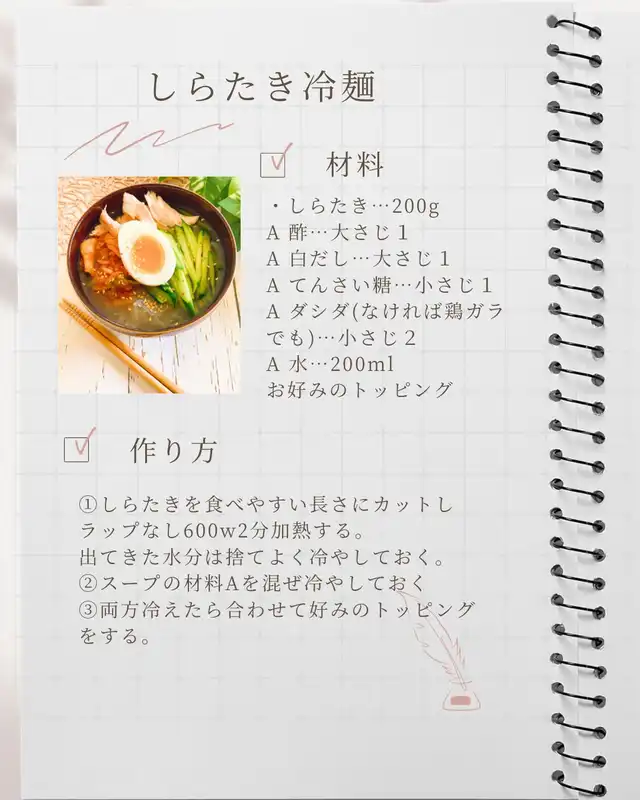 しらたき冷麺
材料
・しらたき…200g
A 酢…大さじ１
A 白だし…大さじ１
A てんさい糖…小さじ１
A ダシダ(なければ鶏ガラ
でも)…小さじ２
A 水…200ml
お好みのトッピング
作り方
①しらたきを食べやすい長さにカットし
ラップなし600w2分加熱する。
出てきた水分は捨てよく冷やしておく。
②スープの材料Aを混ぜ冷やしておく
③両方冷えたら合わせて好みのトッピング
をする。